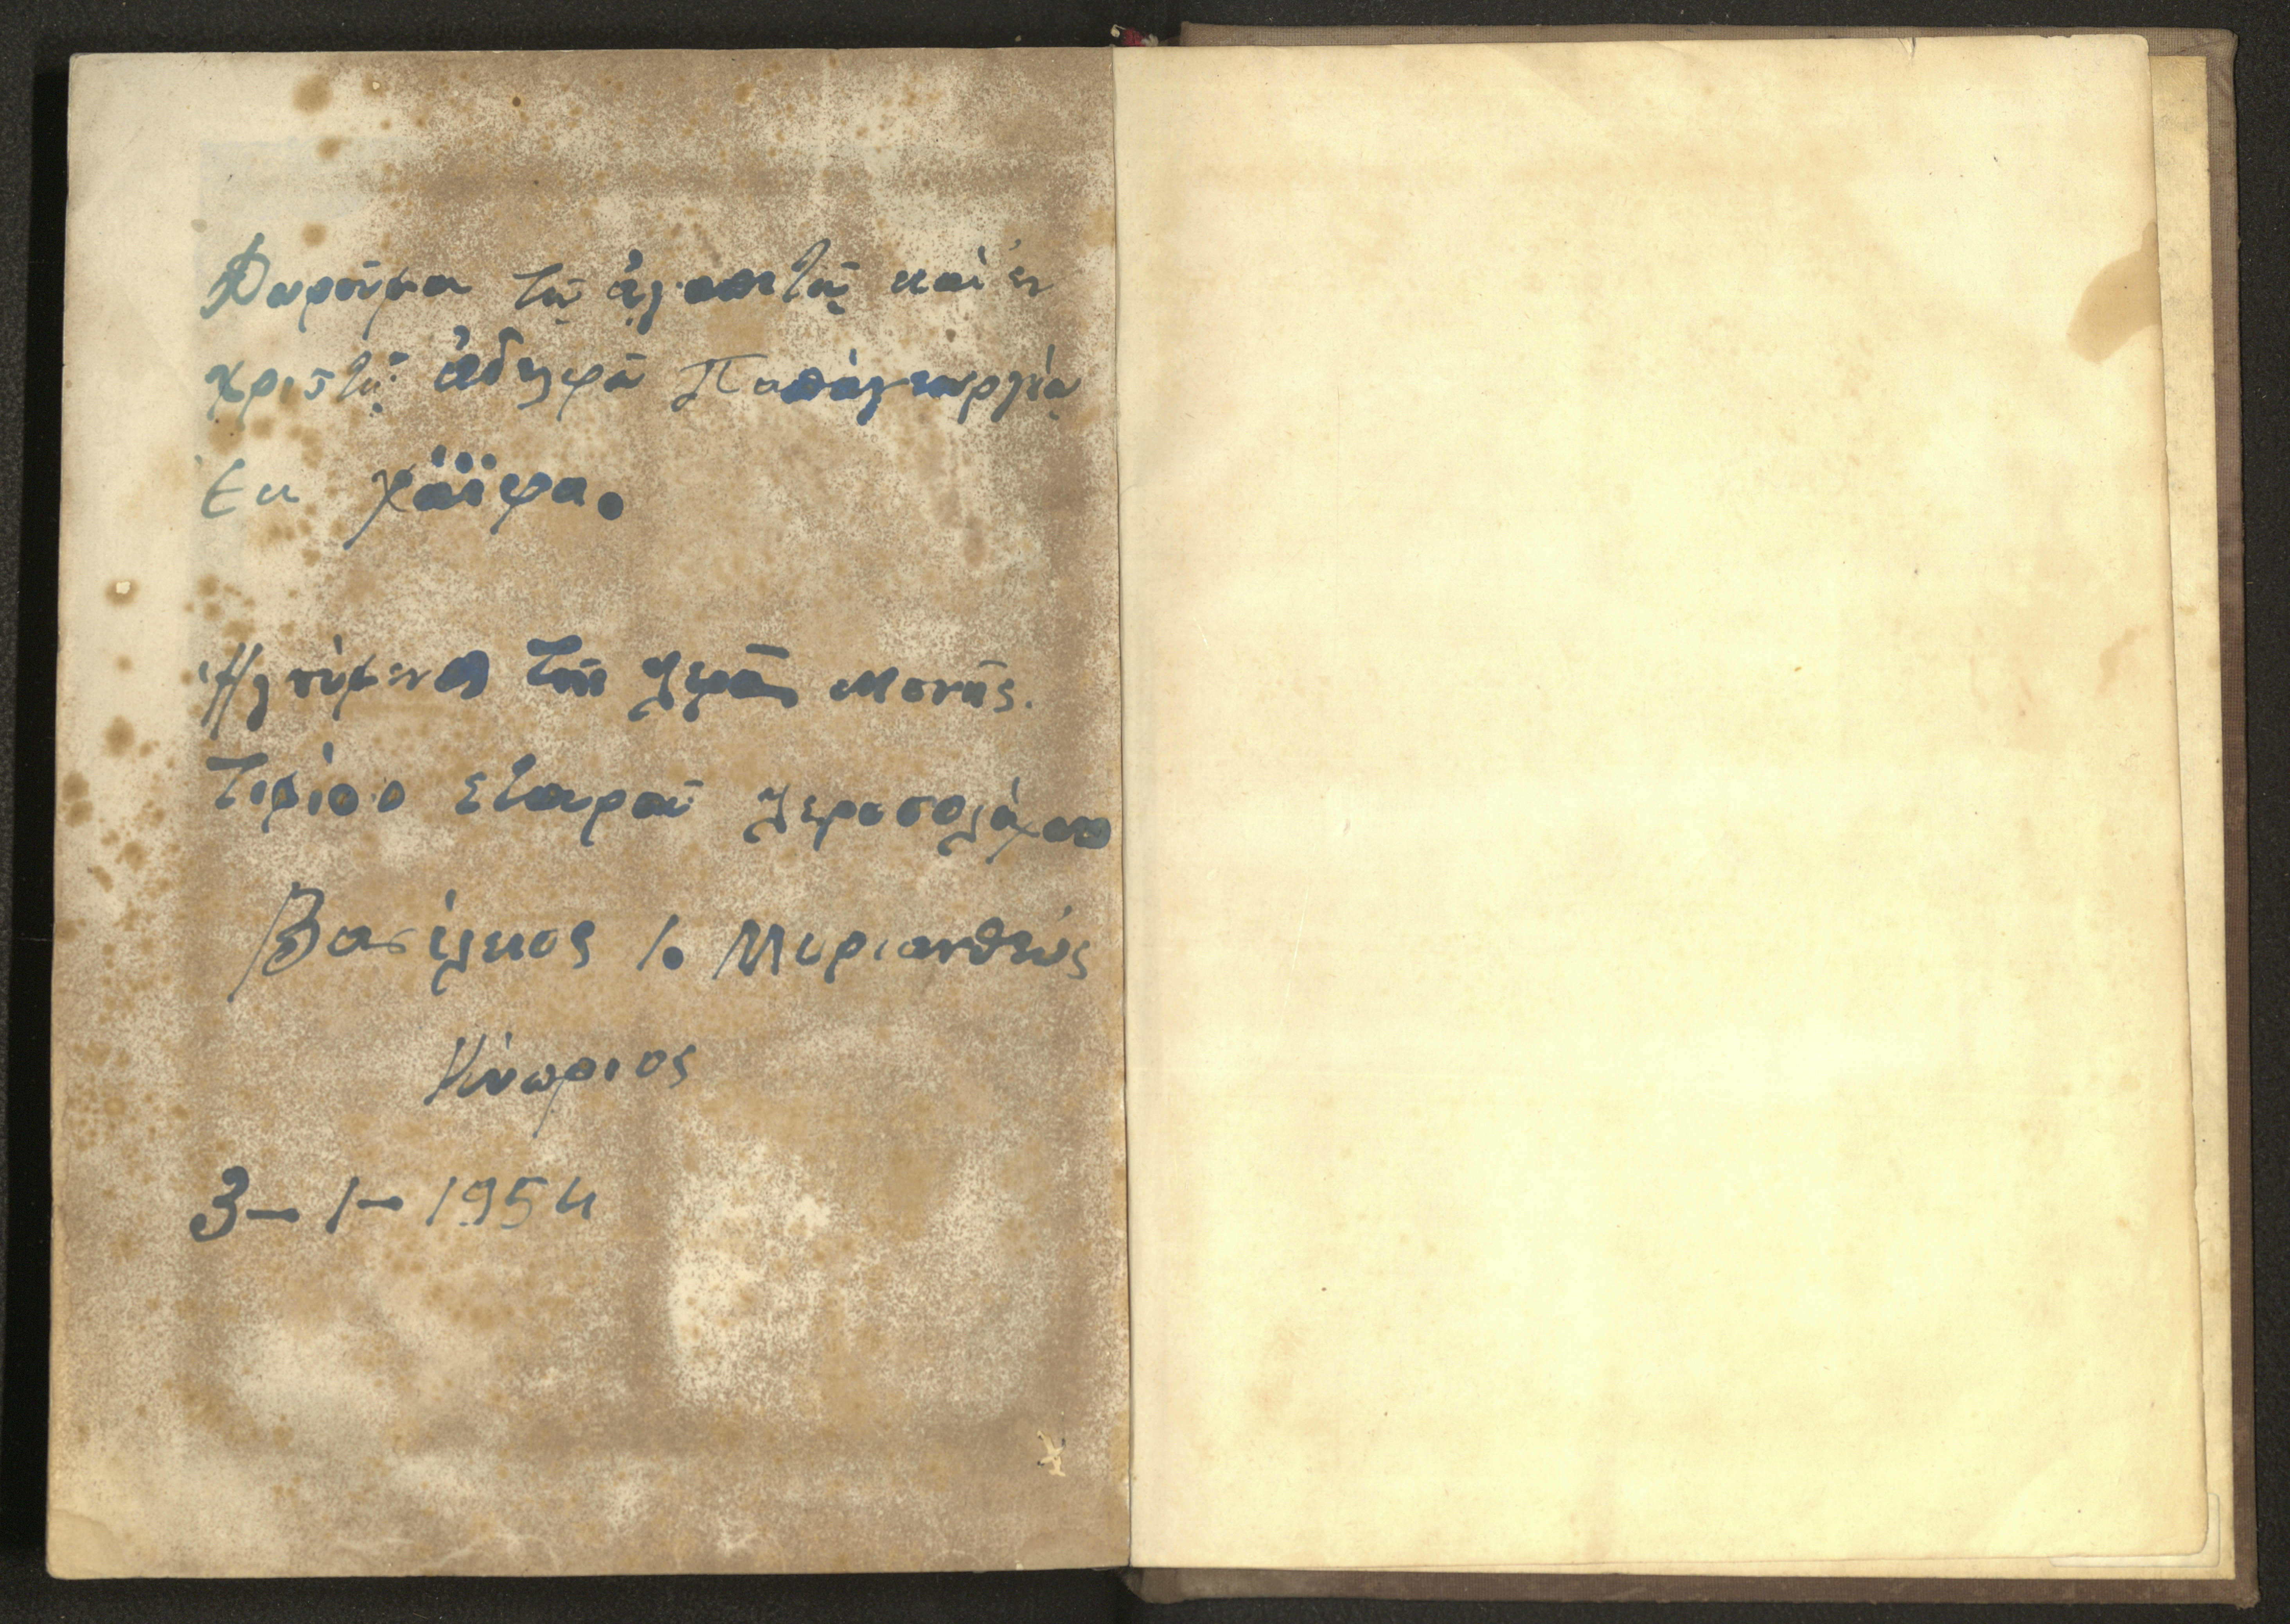 Δωροῦμαι τῷ ἀγαπετῷ καὶ ἐν
χριστῷ ἀδελφῷ Παπάγεωργίῳ
Ἐκ χάϊφα.
Ἡγούμενος τῆς Ἱερᾶς Μονῆς.
Τιμίου Σταυροῦ Ἱεροσολύμων
Βασίλειος Ἰ. Μυριανθεύς
Κύπριος
3 – 1 – 1954